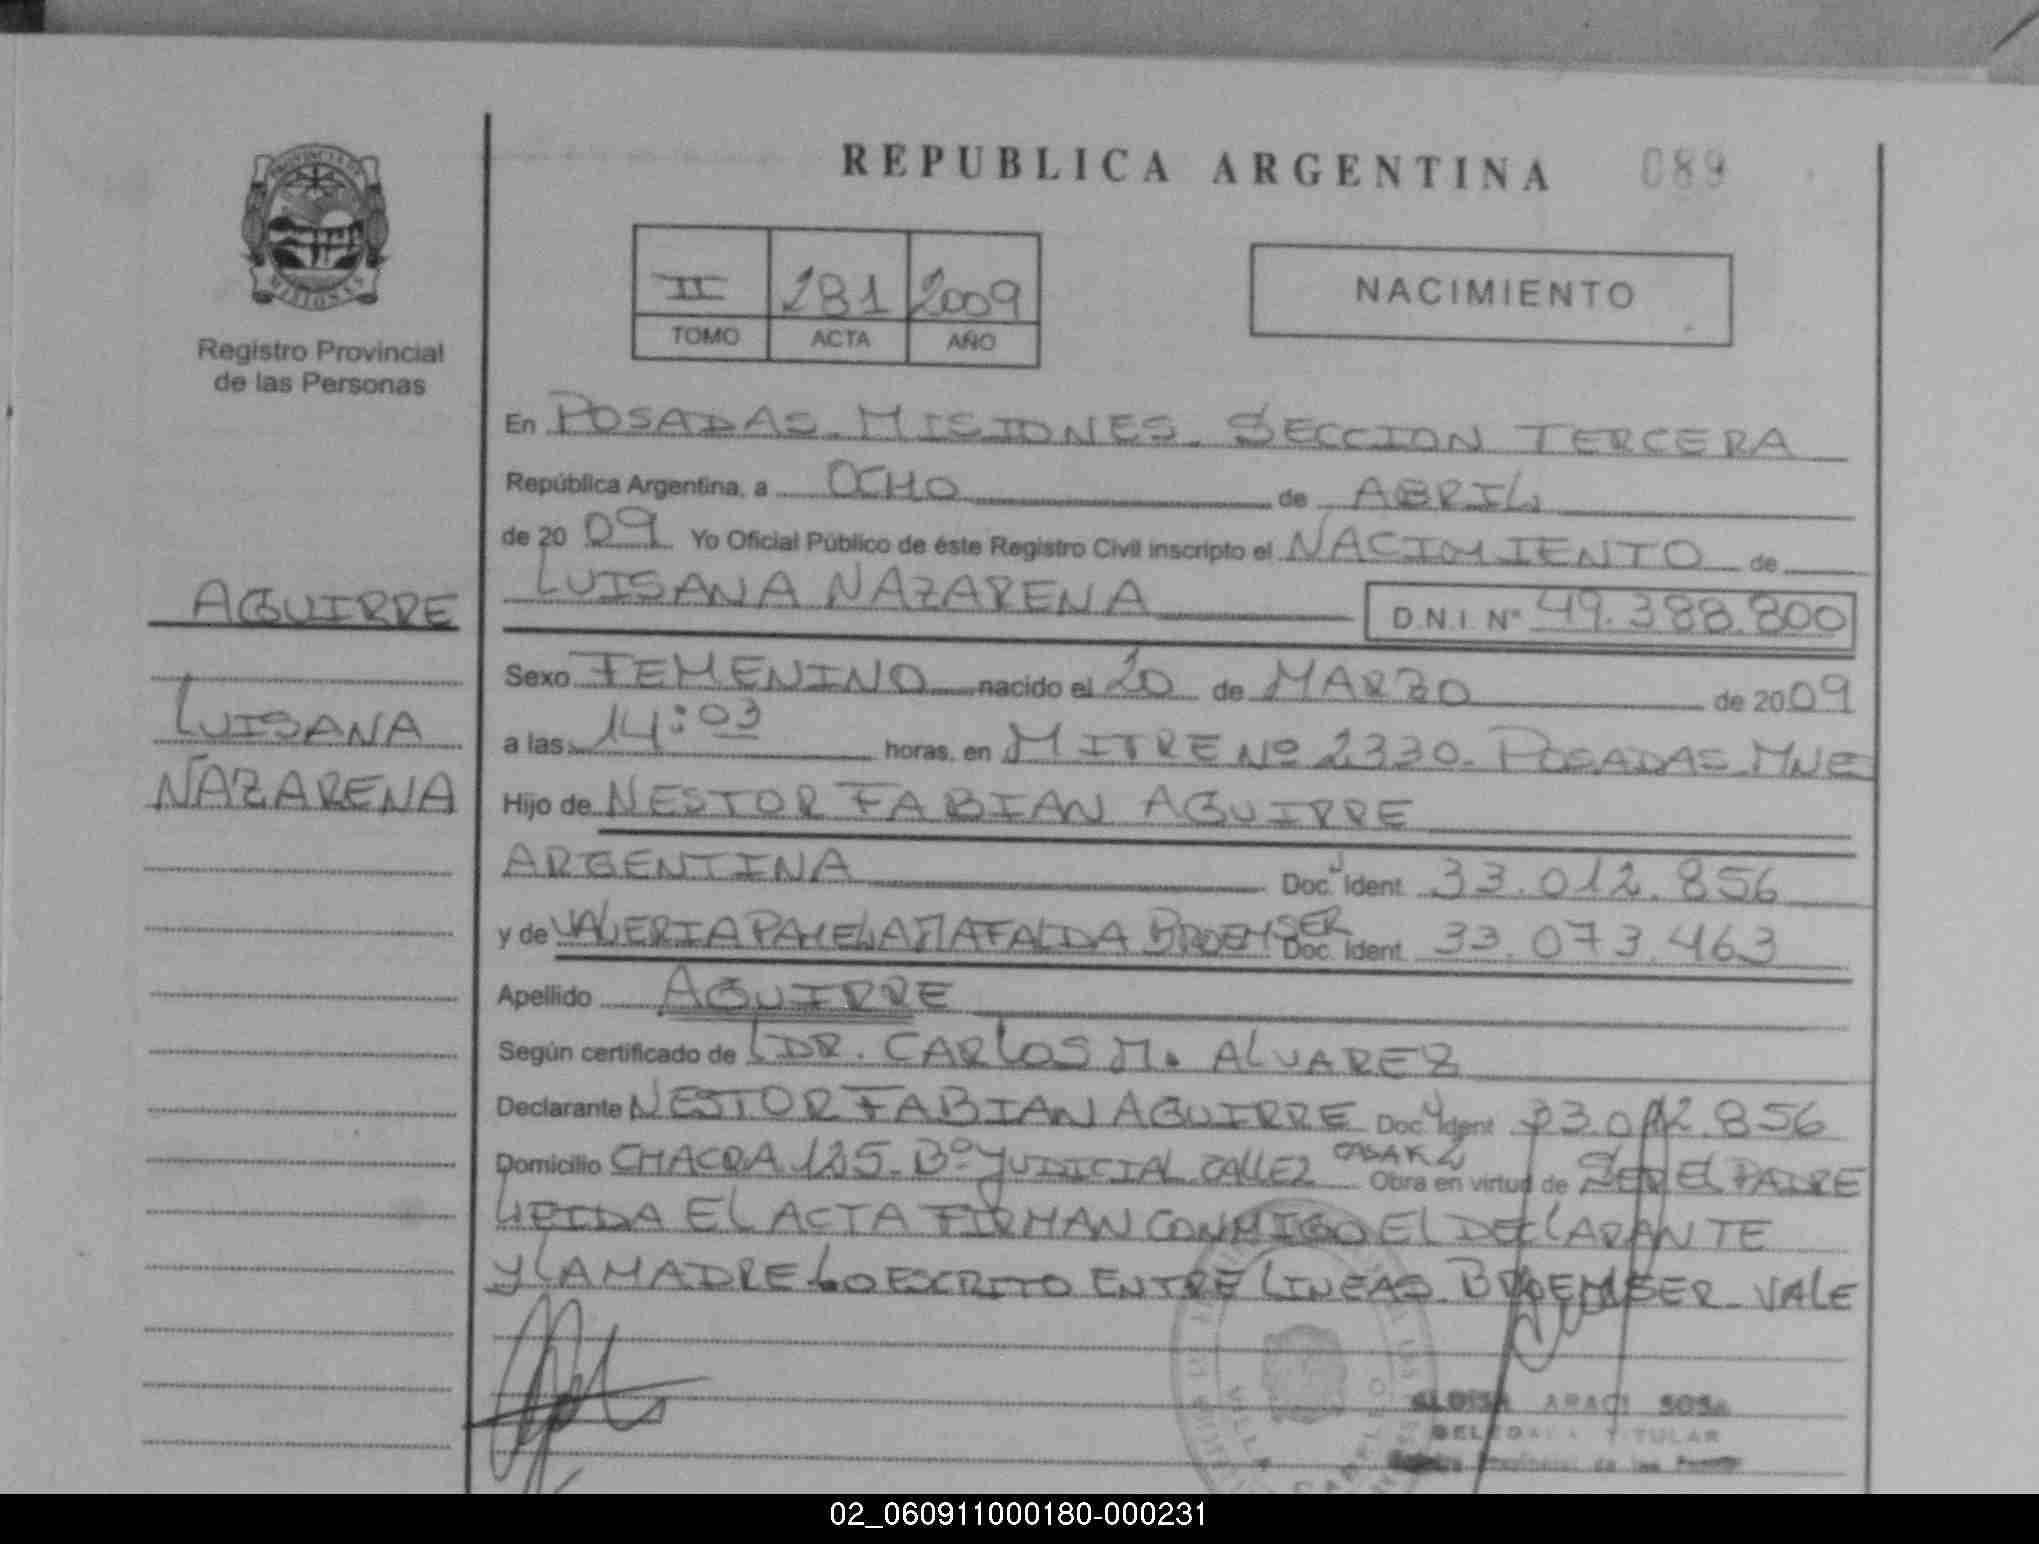 REPUBLICA ARGENTINA 089
PROVINCIA DE
MISIONES
Registro Provincial
de las Personas
II 281 2009
TOMO ACTA AÑO
NACIMIENTO
En POSADAS. MISIONES. SECCION TERCERA
República Argentina, a OCHO de ABRIL
de 20 09 Yo Oficial Público de éste Registro Civil inscripto el NACIMIENTO de
LUISANA NAZARENA D.N.I. Nº 49.388.800
AGUIRRE
LUISANA
NAZARENA
Sexo FEMENINO nacido el 20 de MARZO de 2009
a las 14:03 horas, en MITRE Nº 2330. POSADAS. MNES
Hijo de NESTOR FABIAN AGUIRRE
ARGENTINA Doc. Ident. 33.012.856
y de VALERIA PAMELA MAFALDA BROEMSER Doc. Ident. 33.073.463
Apellido AGUIRRE
Según certificado de DR. CARLOS M. ALVAREZ
Declarante NESTOR FABIAN AGUIRRE Doc. Ident. 33.012.856
Domicilio CHACRA 125. Bº JUDICIAL CALLE 2 CASA K2 Obra en virtud de SER EL PADRE
LEIDA EL ACTA FIRMAN CONMIGO EL DECLARANTE
Y LA MADRE LO ESCRITO ENTRE LINEAS. BROEMSER. VALE
ARACI SOSA
DELEGADA TITULAR
Registro Provincial de las Personas
02_060911000180-000231